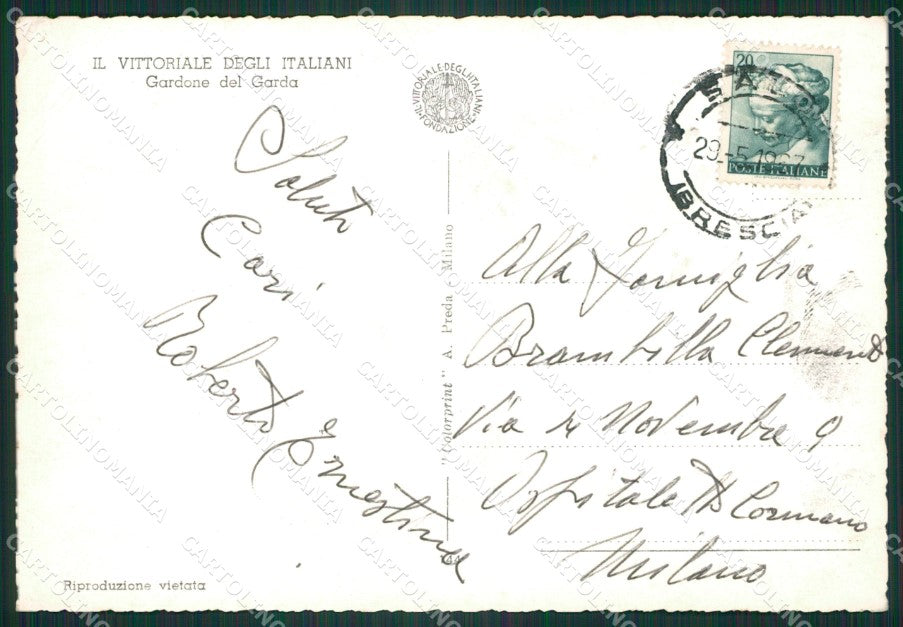 IL VITTORIALE DEGLI ITALIANI
Gardone del Garda
IL VITTORIALE DEGLI ITALIANI
FONDAZIONE
20
POSTE ITALIANE
SALÒ
29-5-1967
(BRESCIA)
Saluti
Cari
Roberto Ernestina
"Colorprint" A. Preda Milano
Alla Famiglia
Brambilla Clemente
Via 4 Novembre 9
Ospitale Cormano
Milano
Riproduzione vietata
CARTOLINOMANIA